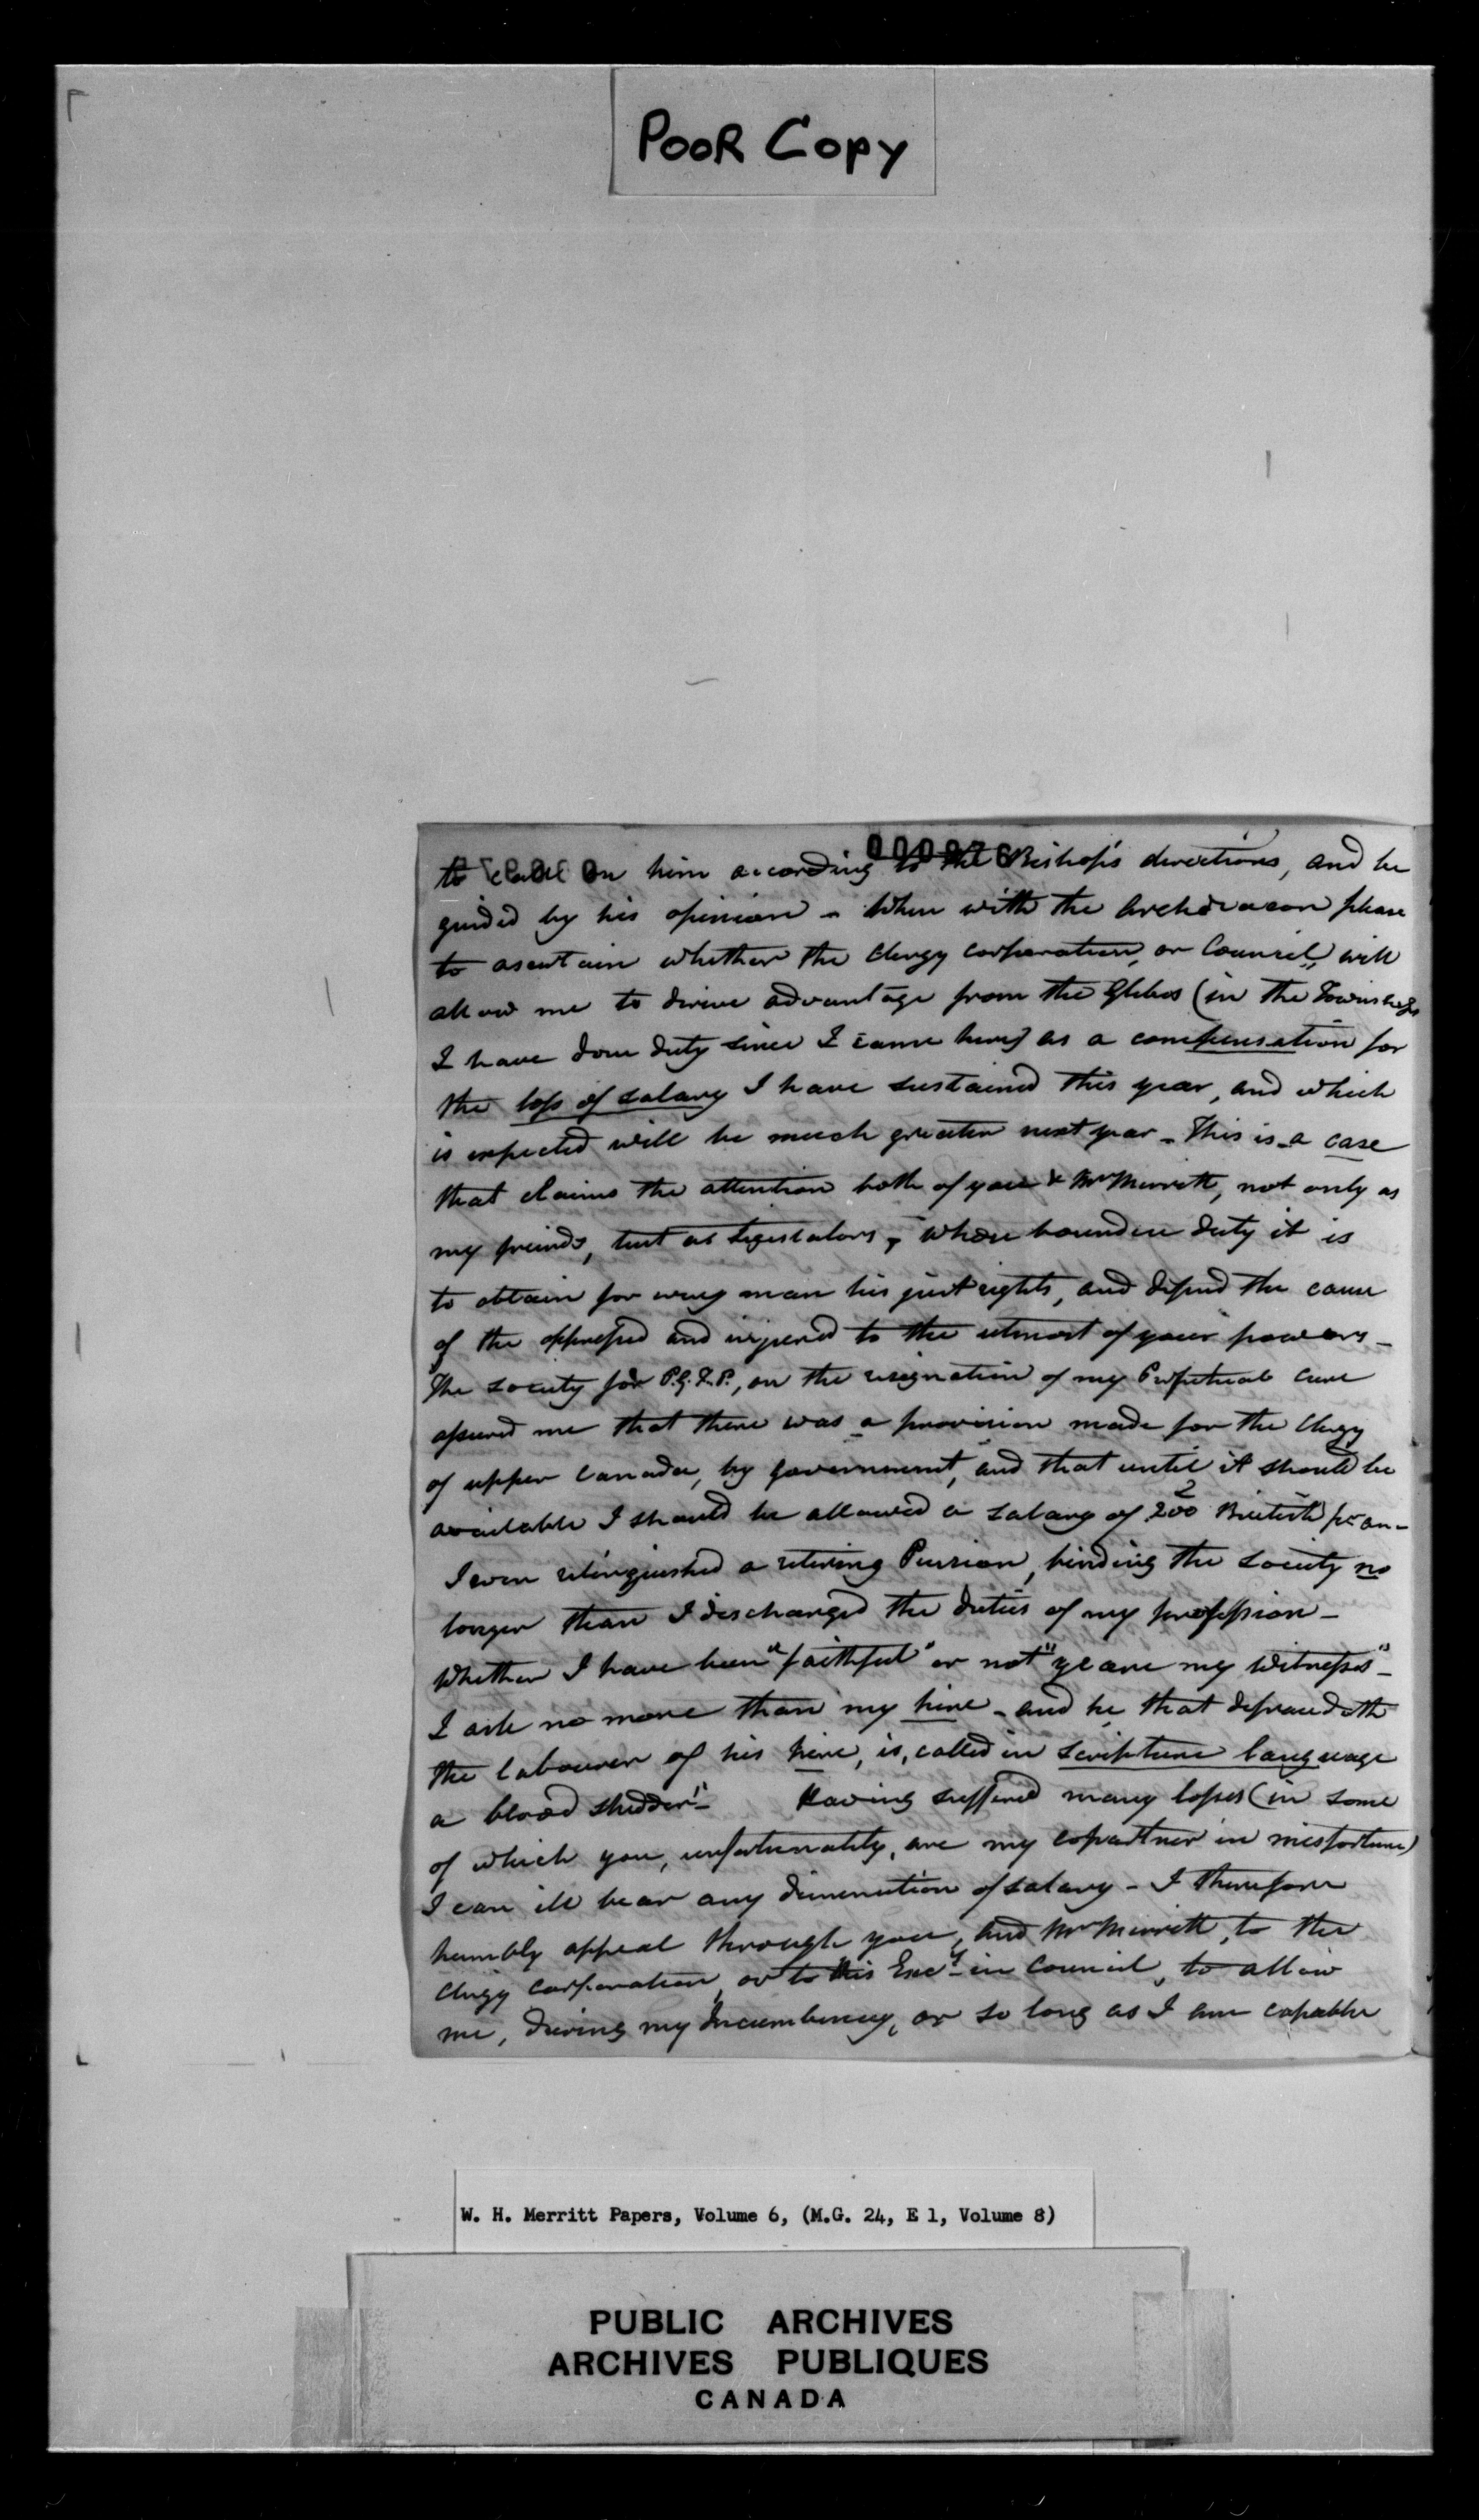 POOR COPY
to call on him according to the Bishop's directions, and be
guided by his opinion - When with the Archdeacon please
to ascertain whether the Clergy corporation, or Council, will
allow me to derive advantage from the Glebes (in the Townships
I have done duty since I came here) as a compensation for
the loss of salary I have sustained this year, and which
is expected will be much greater next year - This is a case
that claims the attention both of you & Mr Merritt, not only as
my friends, but as Legislators, whose bounden duty it is
to obtain for every man his just rights, and defend the cause
of the oppressed and injured to the utmost of your powers -
The society for P.G.F.P., on the resignation of my Perpetual Cure
assured me that there was a provision made for the Clergy
of upper Canada, by government, and that until it should be
available I should be allowed a salary of 200 British pr an -
I even relinquished a retiring Pension, binding the society no
longer than I discharged the duties of my profession -
Whether I have been "faithful" or not "ye are my witnesses" -
I ask no more than my hire - and he that defraudeth
the labourer of his hire, is, called in scripture language
a blood shedder" - Having suffered many losses (in some
of which you, unfortunately, are my copartner in misfortune)
I can ill bear any diminution of salary - I therefore
humbly appeal through you, and Mr Merritt, to the
Clergy corporation, or to His Excy in Council, to allow
me, during my Incumbency, or so long as I am capable
W. H. Merritt Papers, Volume 6, (M.G. 24, E 1, Volume 8)
PUBLIC ARCHIVES
ARCHIVES PUBLIQUES
CANADA